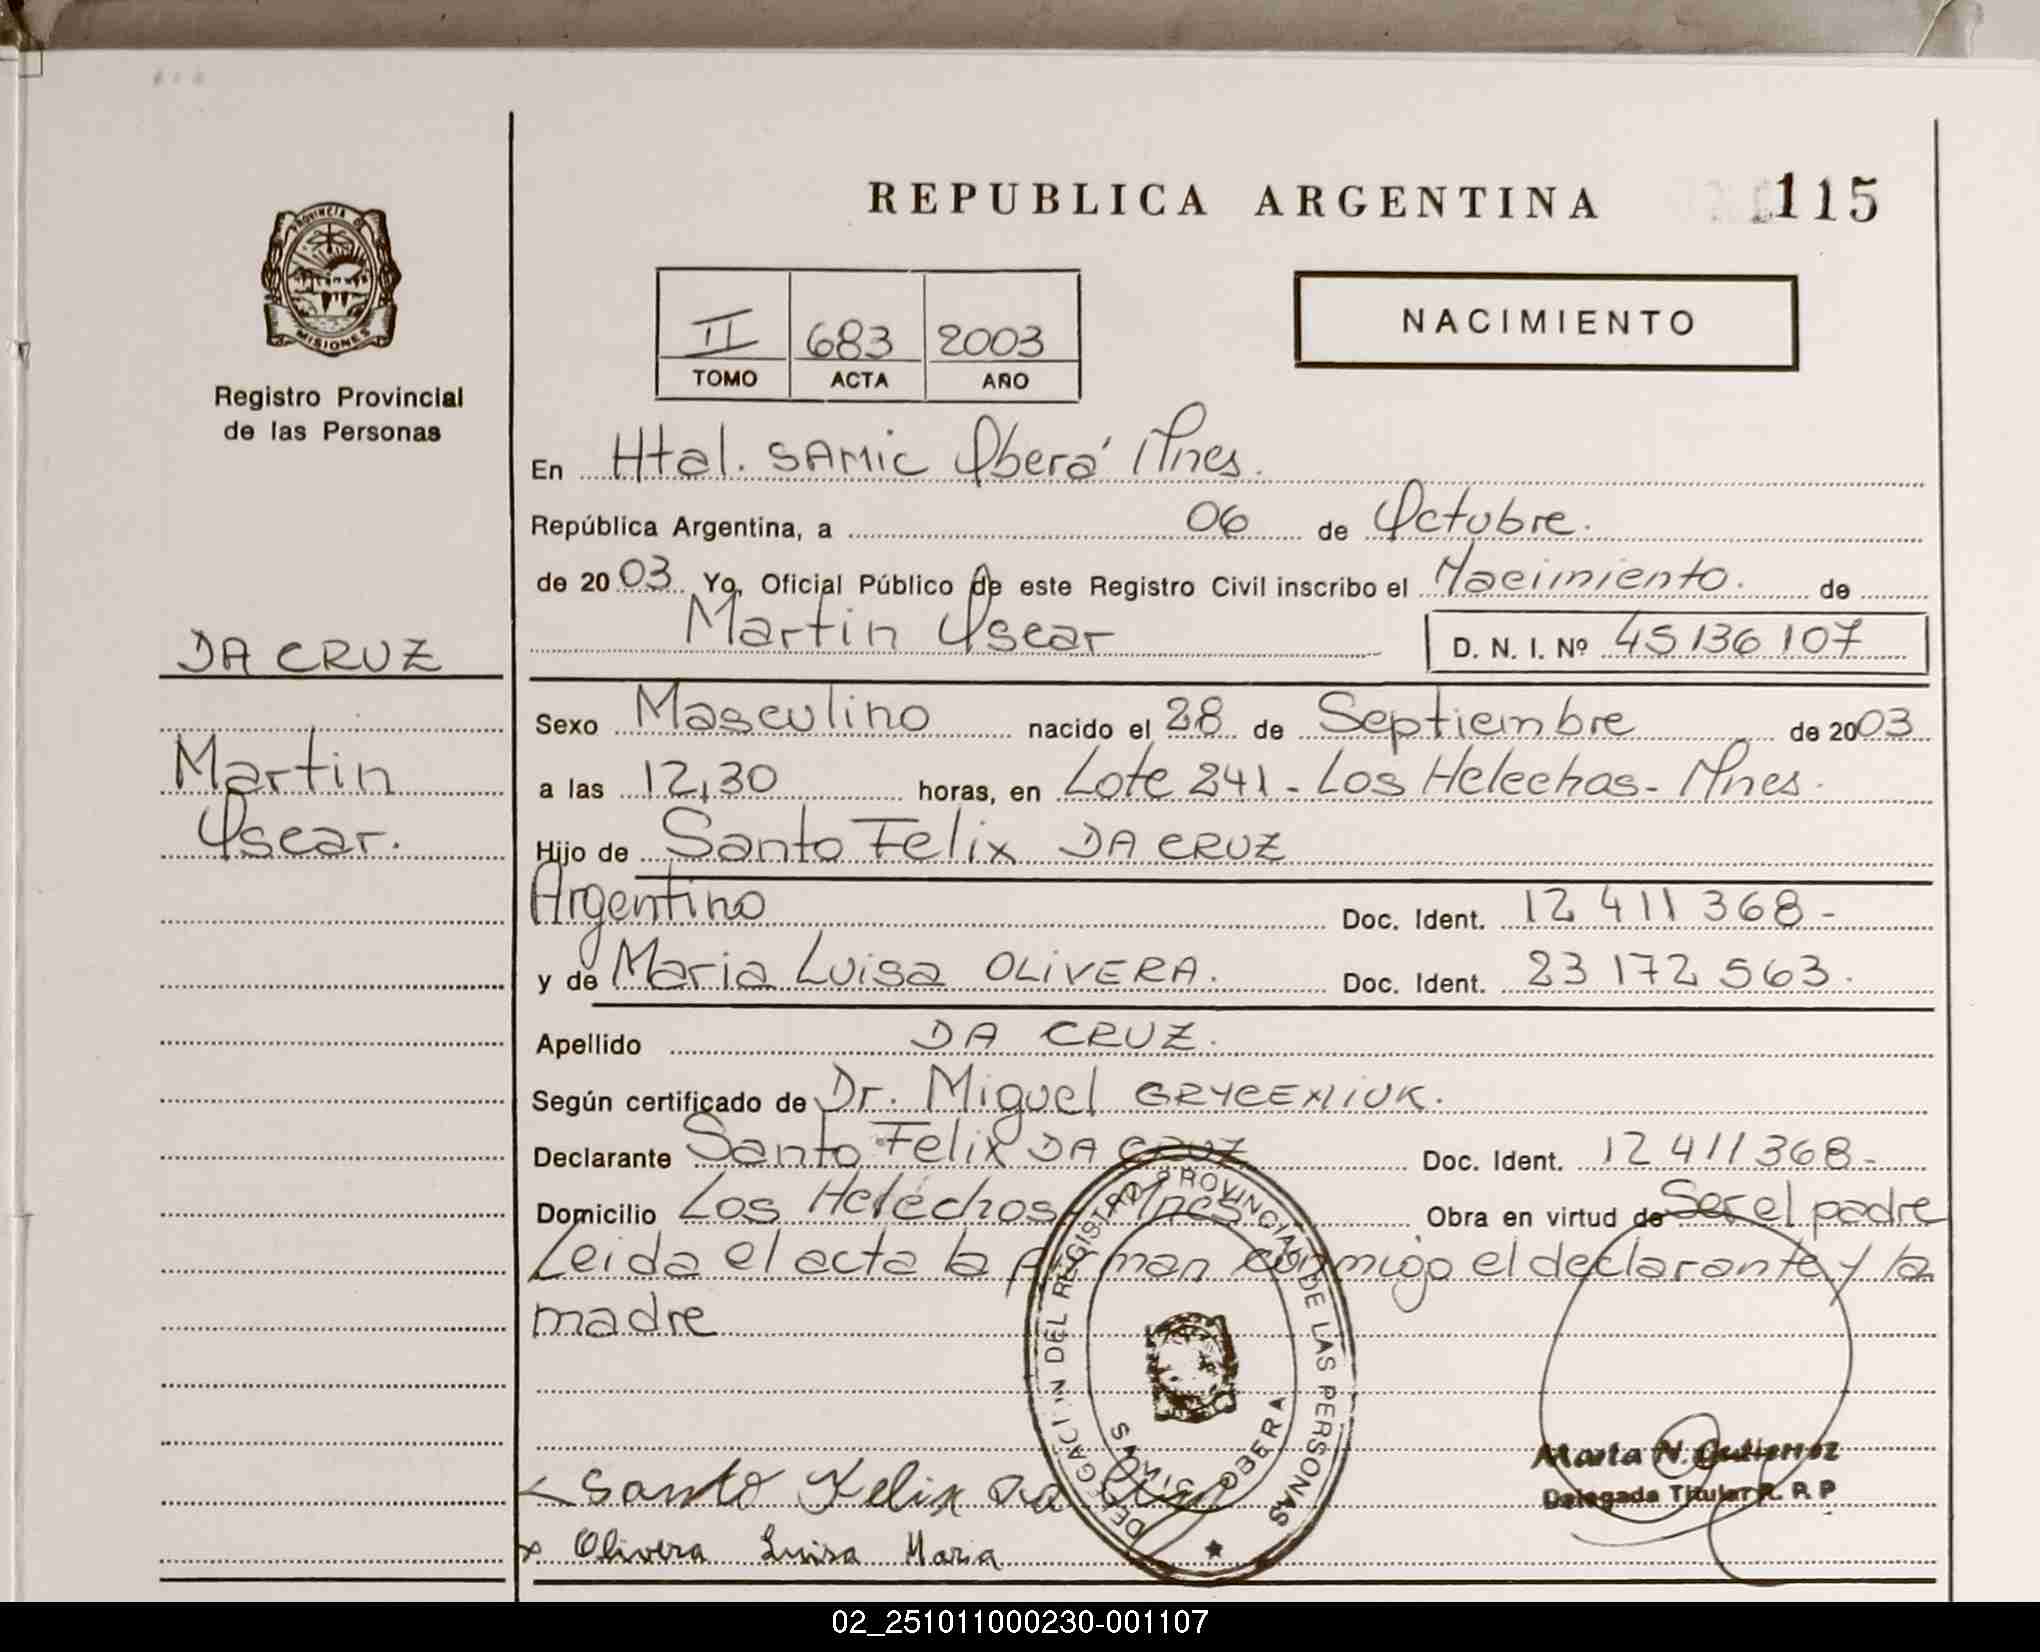 REPUBLICA ARGENTINA 115
PROVINCIA DE
MISIONES
Registro Provincial
de las Personas
II 683 2003
TOMO ACTA AÑO
NACIMIENTO
En Htal. SAMIC Oberá Mnes.
República Argentina, a 06 de Octubre.
de 2003 Yo, Oficial Público de este Registro Civil inscribo el Nacimiento. de
Martin Oscar D. N. I. Nº 45 136 107
DA CRUZ
Martin
Oscar.
Sexo Masculino nacido el 28 de Septiembre de 2003
a las 12,30 horas, en Lote 241 - Los Helechos - Mnes.
Hijo de Santo Felix DA CRUZ
Argentino Doc. Ident. 12 411 368 -
y de Maria Luisa OLIVERA. Doc. Ident. 23 172 563.
Apellido DA CRUZ.
Según certificado de Dr. Miguel
Declarante Santo Felix DA CRUZ Doc. Ident. 12 411 368 -
Domicilio Los Helechos - Mnes Obra en virtud de Ser el padre
Leida el acta la firman conmigo el declarante y la
madre
DELEGACION DEL REGISTRO PROVINCIAL DE LAS PERSONAS
OBERA
Santo Felix Da Cruz
x Olivera Luisa Maria
Marta N. Gutierrez
Delegada Titular R. P. P.
02_251011000230-001107